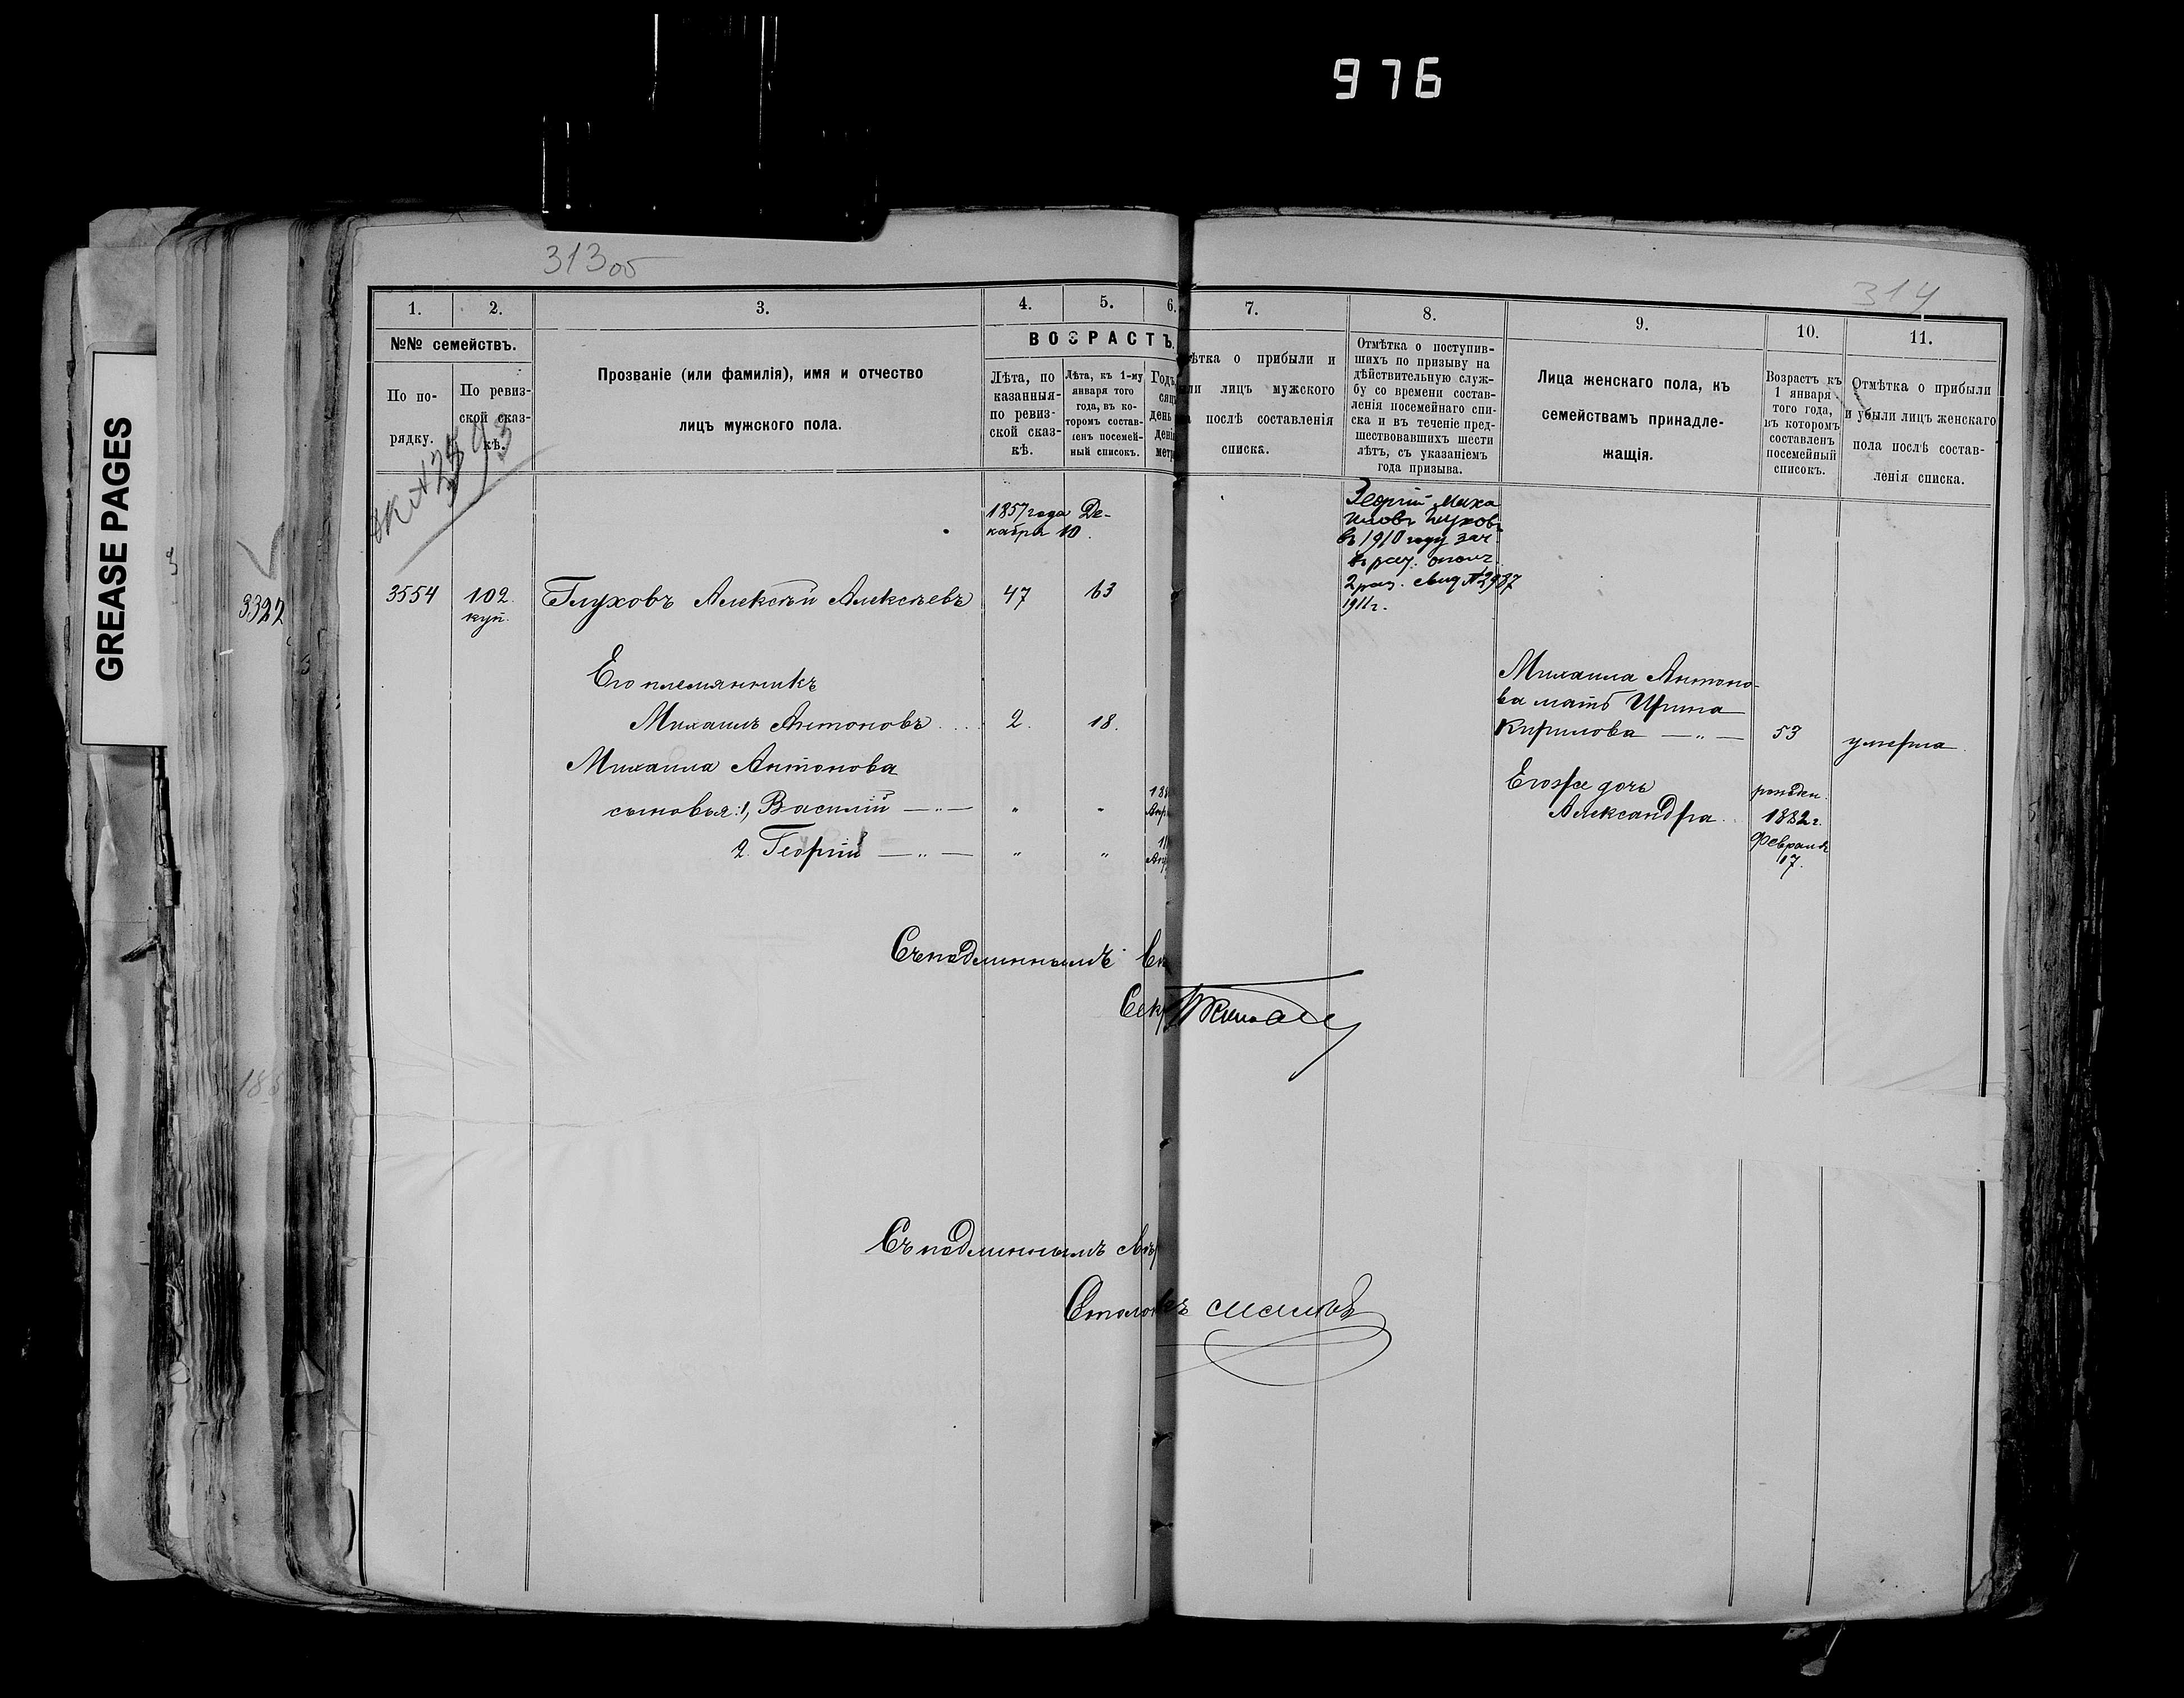 976
GREASE PAGES
3322
313об
314
1.
2.
3.
4.
5.
6.
7.
8.
9.
10.
11.
№№ семействъ.
По по-
рядку.
По ревиз-
ской сказ-
кѣ.
Прозваніе (или фамилія), имя и отчество
лицъ мужского пола.
ВОЗРАСТЪ.
Лѣта, по
казанныя
по ревиз-
ской сказ-
кѣ.
Лѣта, къ 1-му
января того
года, въ ко-
торомъ состав-
ленъ посемей-
ный список.
Годъ,
сяцъ
день
дені
метр
ѣтка о прибыли и
или лицъ мужского
а послѣ составленія
списка.
Отмѣтка о поступив-
шихъ по призыву на
дѣйствительную служ-
бу со времени состав-
ленія посемейнаго спи-
ска и въ теченіе пред-
шествовавшихъ шести
лѣтъ, съ указаніемъ
года призыва.
Лица женскаго пола, къ
семействамъ принадле-
жащія.
Возрастъ къ
1 января
того года,
въ которомъ
составленъ
посемейный
списокъ.
Отмѣтка о прибыли
и убыли лицъ женскаго
пола послѣ состав-
ленія списка.
1857 года Де-
кабря 10.
Георгій Миха
иловъ Глуховъ
въ 1910 году зач
въ рат. ополч.
2 раз. свид №2937
1911 г.
3554
102
куп.
Глуховъ Алексѣй Алексѣевъ
47
63
Его племянникъ
Михаилъ Антоновъ
2.
18.
Михаила Антонова
сыновья: 1, Василій — „ —
„
„
18
Апр
2. Георгій — „ —
„
„
Михаила Антоно-
ва мать Ирина
Кирилова — „ —
53
умерла
Его же дочь
Александра
рожден.
1882 г.
Февраля
17.
Съ подлиннымъ
Сек
Съ подлиннымъ
Столон